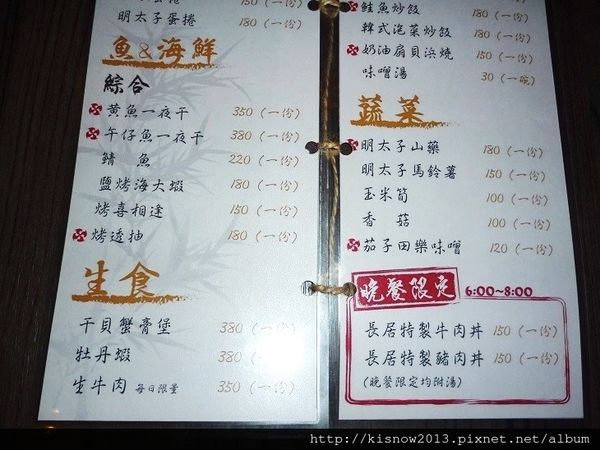 蛋捲 150 (一份)
明太子蛋捲 180 (一份)
魚&海鮮
綜合
黃魚一夜干 350 (一份)
午仔魚一夜干 380 (一份)
鯖魚 220 (一份)
鹽烤海大蝦 180 (一份)
烤喜相逢 150 (一份)
烤透抽 180 (一份)
生食
干貝蟹膏堡 380 (一份)
牡丹蝦 380 (一份
生牛肉 每日限量 350 (一份)
鮭魚炒飯 180 (一份)
韓式泡菜炒飯 180 (一份)
奶油扇貝浜燒 150 (一份)
味噌湯 30 (一碗)
蔬菜
明太子山藥 180 (一份)
明太子馬鈴薯 150 (一份)
玉米筍 100 (一份)
香菇 100 (一份)
茄子田樂味噌 120 (一份)
晚餐限定 6:00~8:00
長居特製牛肉丼 150 (一份)
長居特製豬肉丼 150 (一份)
(晚餐限定均附湯)
http://kisnow2013.pixnet.net/album